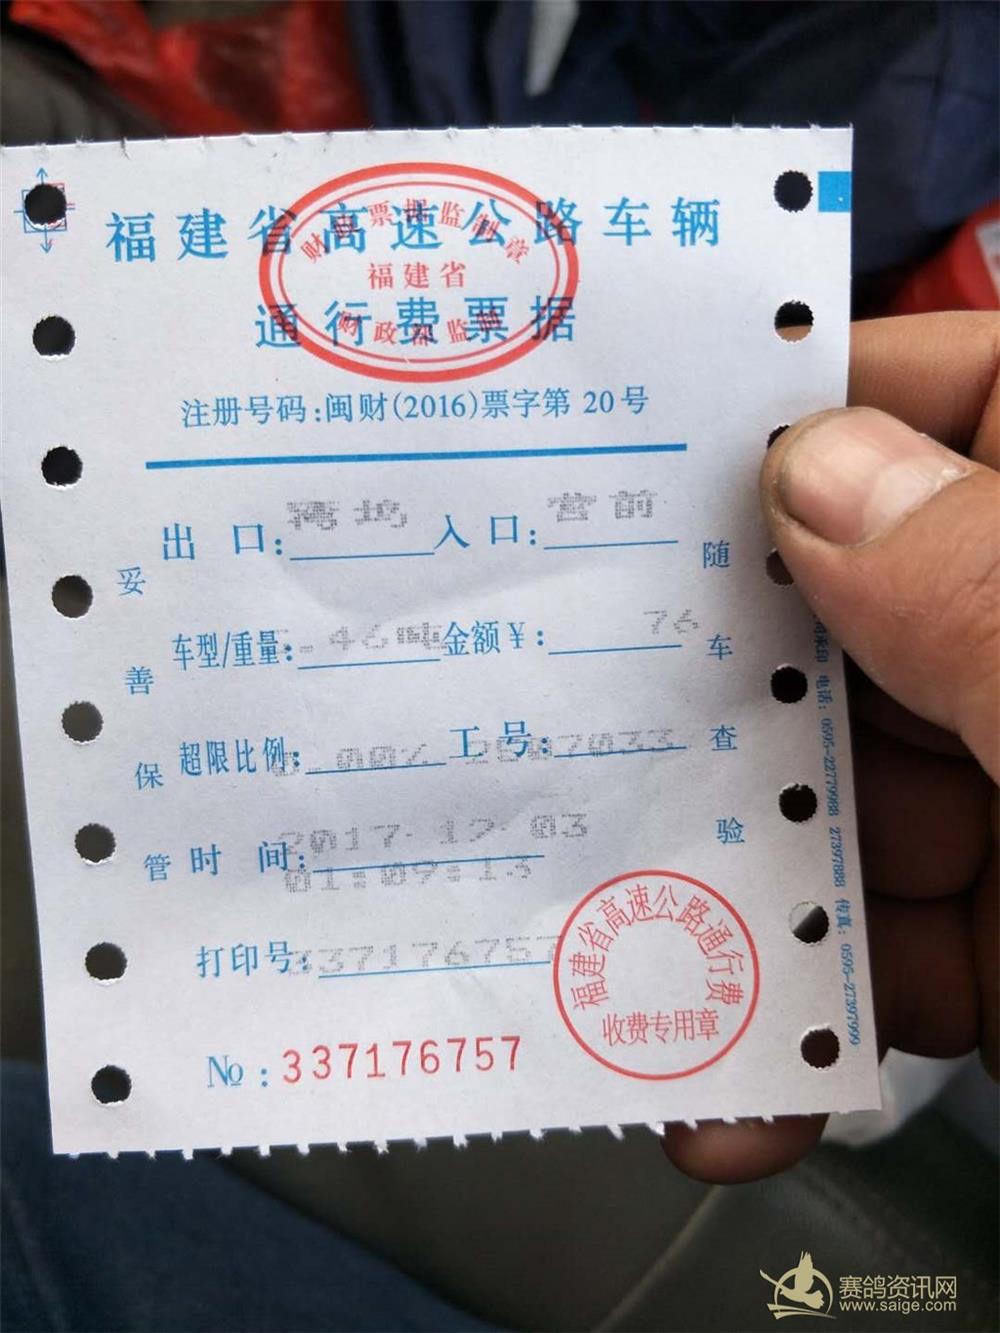 福建省高速公路车辆
通行费票据
财政票据监制章
福建省
财政部监制
注册号码:闽财(2016)票字第 20号
出 口: 湾坞 入 口: 营前
车型/重量: .46吨 金额￥: 76
超限比例: 0.00% 工号: 2507033
时 间: 2017-12-03
01:09:13
打印号: 337176757
№ : 337176757
妥善保管
随车查验
福建省高速公路通行费
收费专用章
印 电话: 0595-22779988 27397888 传真: 0595-27397999
赛鸽资讯网
www.saige.com